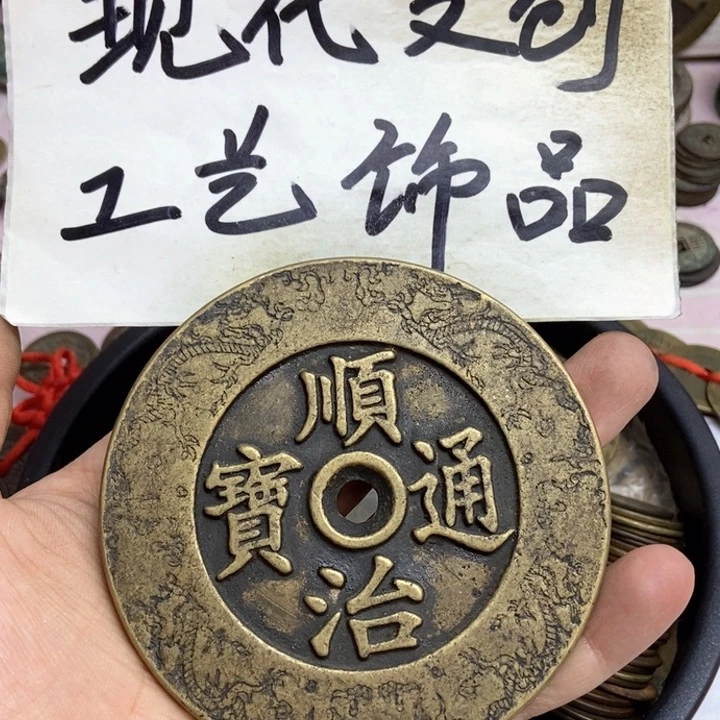 现代文创
工艺饰品
順治通寶